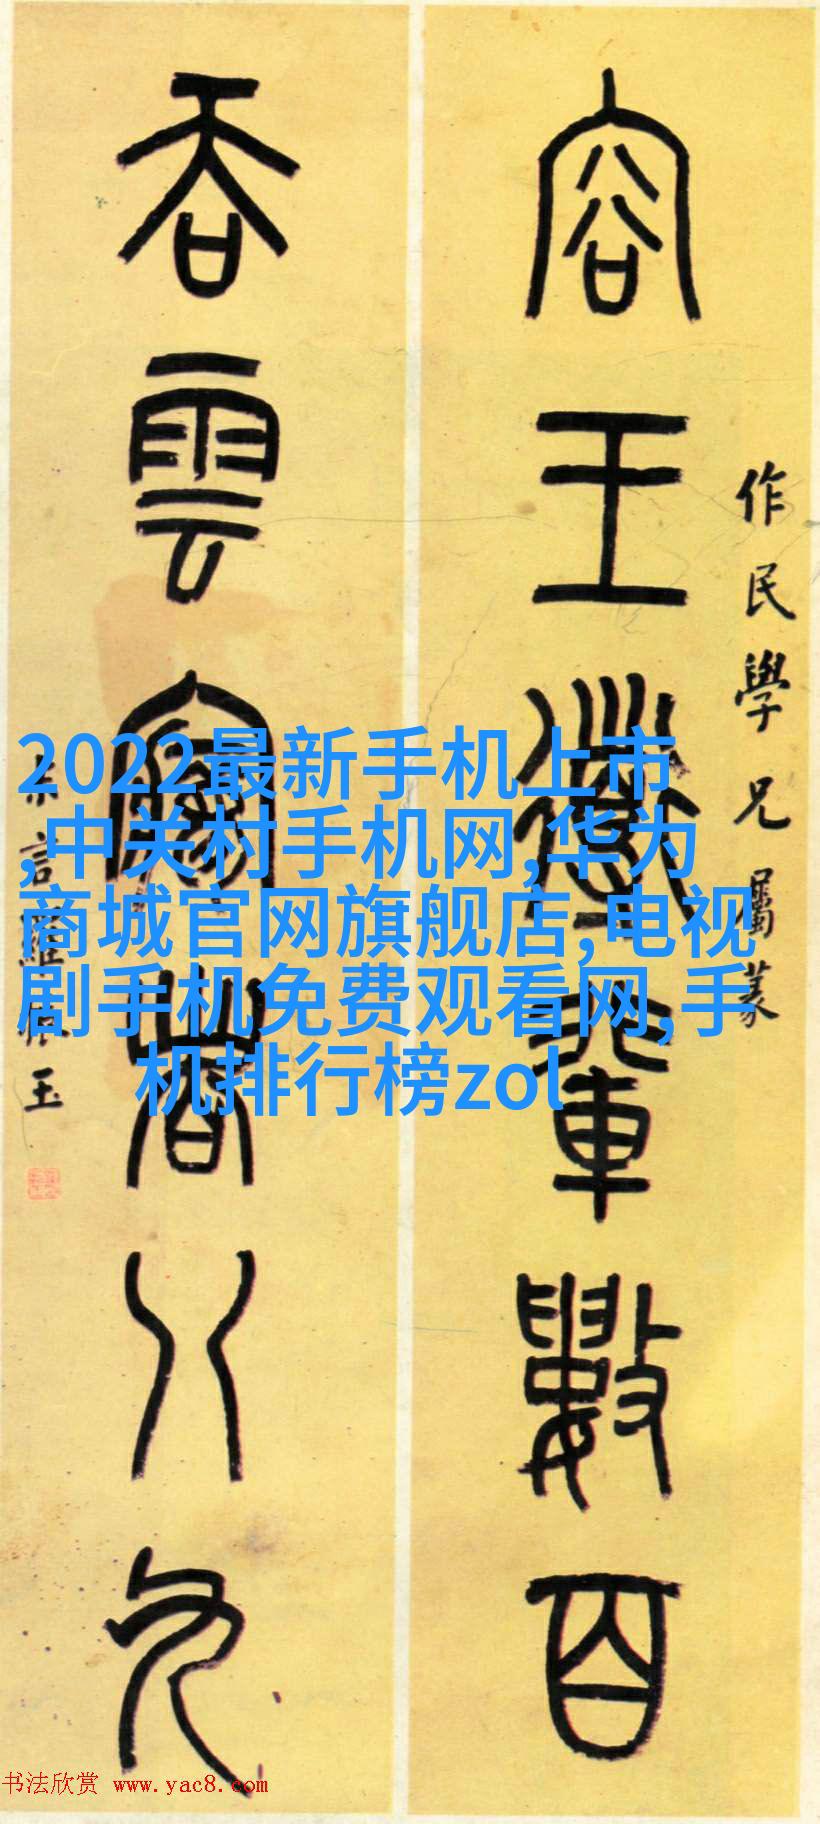 作民學兄屬篆
容王輩數百
吞雲夢者八九
言羅振玉
2022最新手机上市
,中关村手机网,华为
商城官网旗舰店,电视
剧手机免费观看网,手
机排行榜zol
书法欣赏 www.yac8.com